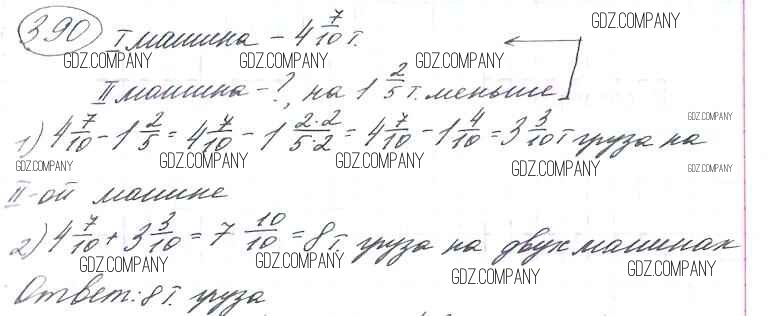 390 I машина - 4 7/10 т.
GDZ.COMPANY
GDZ.COMPANY GDZ.COMPANY GDZ.COMPANY
II машина - ?, на 1 2/5 т. меньше
GDZ.COMPANY GDZ.COMPANY GDZ.COMPANY
1) 4 7/10 - 1 2/5 = 4 7/10 - 1 2·2/5·2 = 4 7/10 - 1 4/10 = 3 3/10 т груза на
GDZ.COMPANY
GDZ.COMPANY GDZ.COMPANY GDZ.COMPANY GDZ.COMPANY GDZ.COMPANY
II-ой машине
2) 4 7/10 + 3 3/10 = 7 10/10 = 8 т. груза на двух машинах
GDZ.COMPANY GDZ.COMPANY GDZ.COMPANY GDZ.COMPANY
Ответ: 8 т. груза